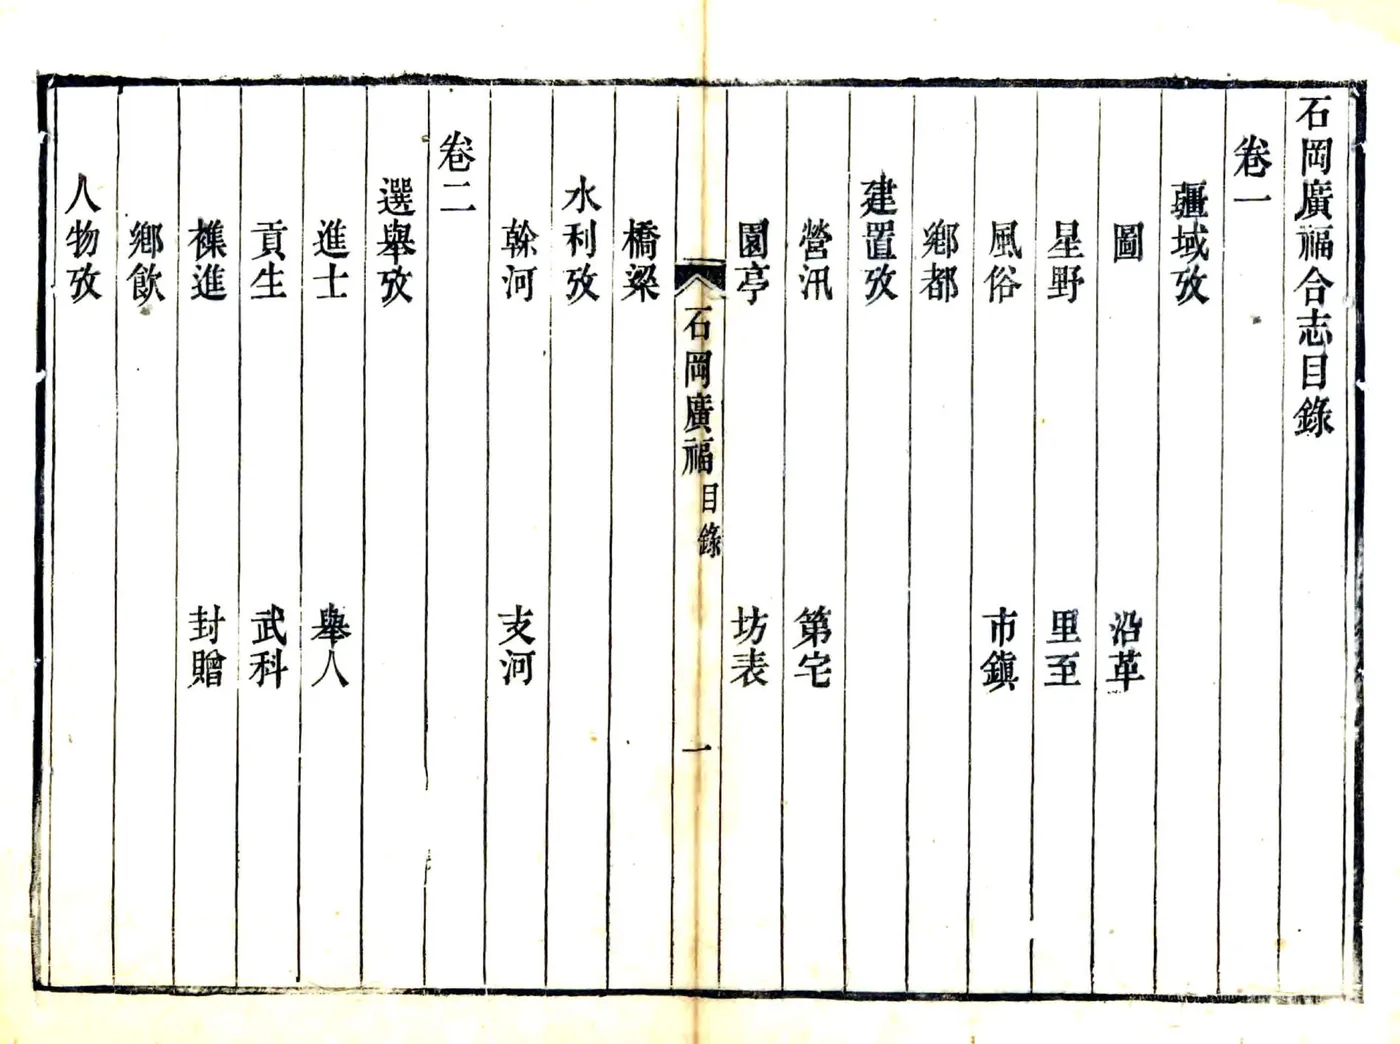 石岡廣福合志目錄
卷一
疆域攷
圖 沿革
星野 里至
風俗 市鎮
鄉都
建置攷
營汛 第宅
園亭 坊表
石岡廣福 目錄 一
橋梁
水利攷
榦河 支河
卷二
選舉攷
進士 舉人
貢生 武科
襍進 封贈
鄉飲
人物攷